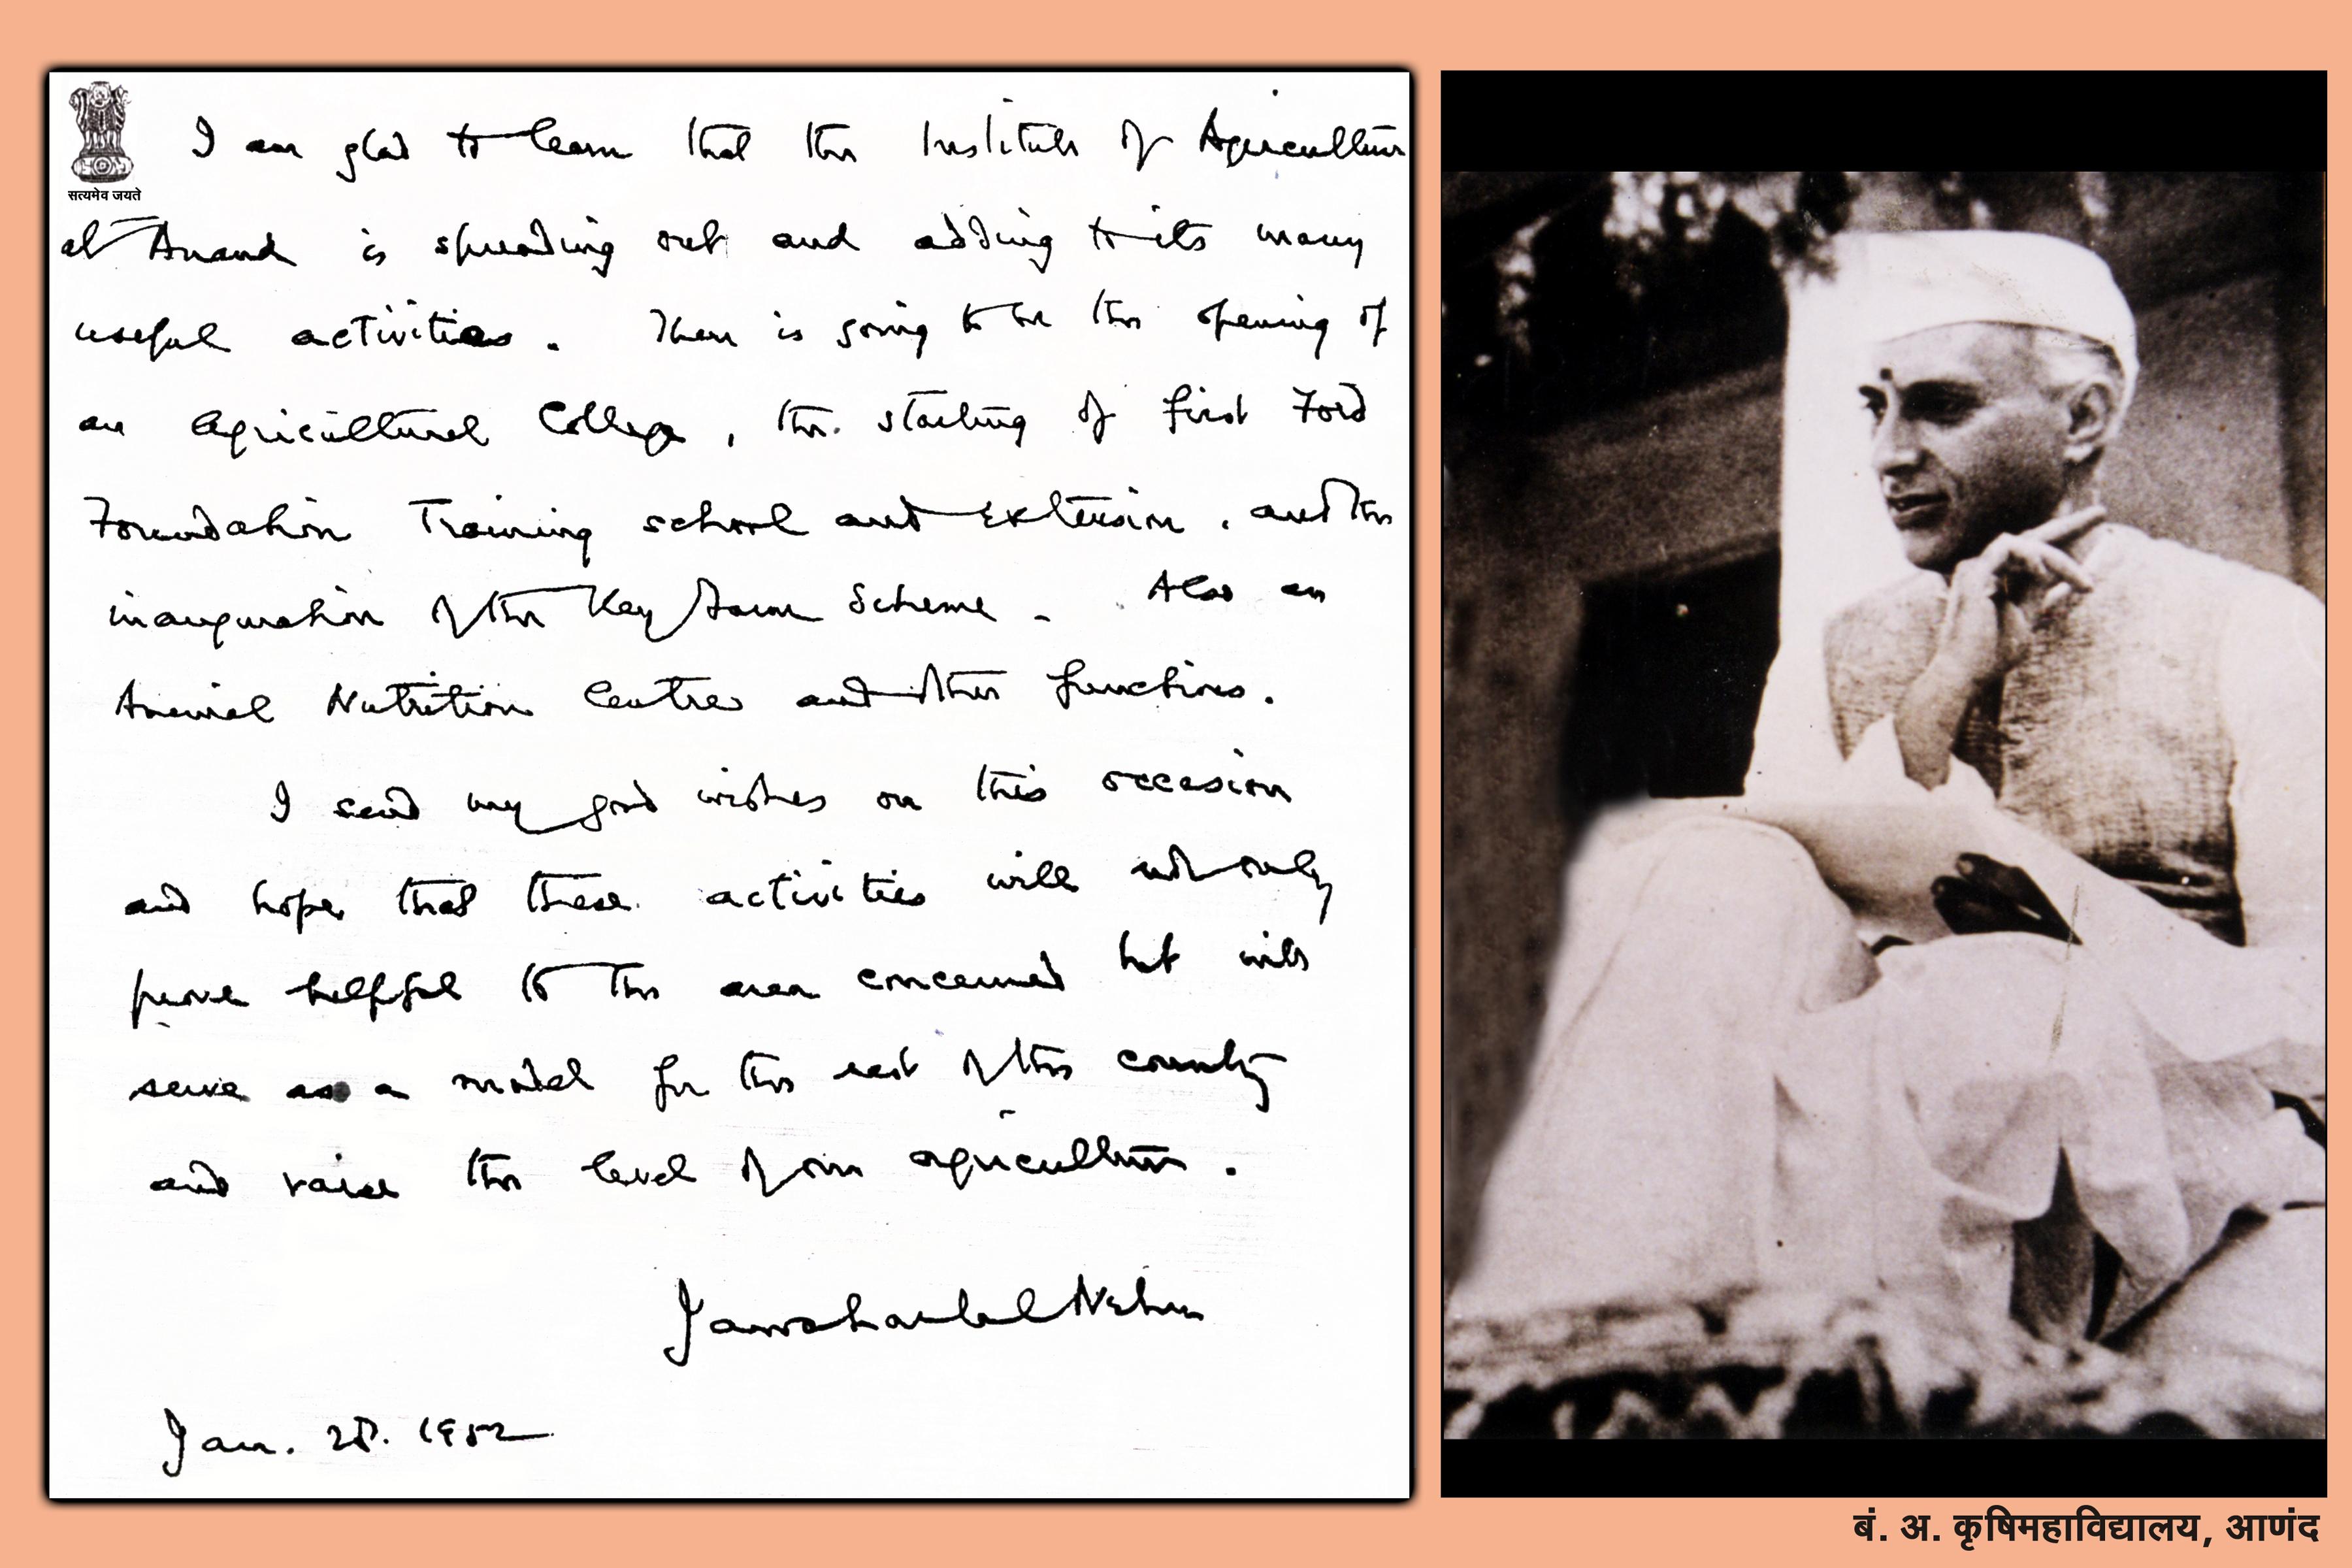 सत्यमेव जयते
I am glad to learn that the Institute of Agriculture
at Anand is spreading out and adding to its many
useful activities. There is going to be the opening of
an Agricultural College, the starting of first Ford
Foundation Training school and Extension, and the
inauguration of the Key Farm Scheme. Also an
Animal Nutrition Centre and other functions.
I send my good wishes on this occasion
and hope that these activities will not only
prove helpful to the area concerned but will
serve as a model for the rest of the country
and raise the level of our agriculture.
Jawaharlal Nehru
Jan. 28. 1952
बं. अ. कृषिमहाविद्यालय, आणंद